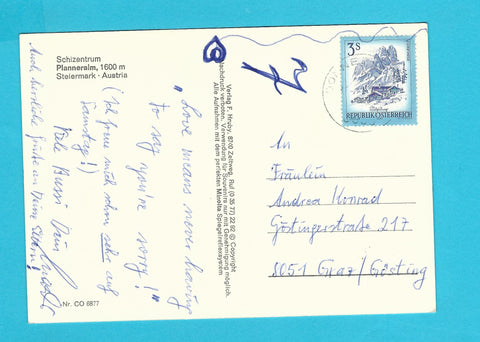 Schizentrum
Planneralm, 1600 m
Steiermark · Austria
„Love means never having
to say you're sorry!"
(Ich freue mich schon sehr auf
Samstag!)
Viele Bussi Dein
Auch herzliche Grüße an Deine Eltern!
Nr. CO 6877
Verlag F. Hruby, 8740 Zeltweg, Ruf (0 35 77) 22 92 © Copyright
Nachdruck verboten. Verwendung für Souvenirs nur mit Genehmigung möglich.
Alle Aufnahmen mit dem perfekten Minolta Spiegelreflexsystem
3S
REPUBLIK ÖSTERREICH
An
Fräulein
Andrea Konrad
Göstingerstraße 217
8051 Graz/Gösting